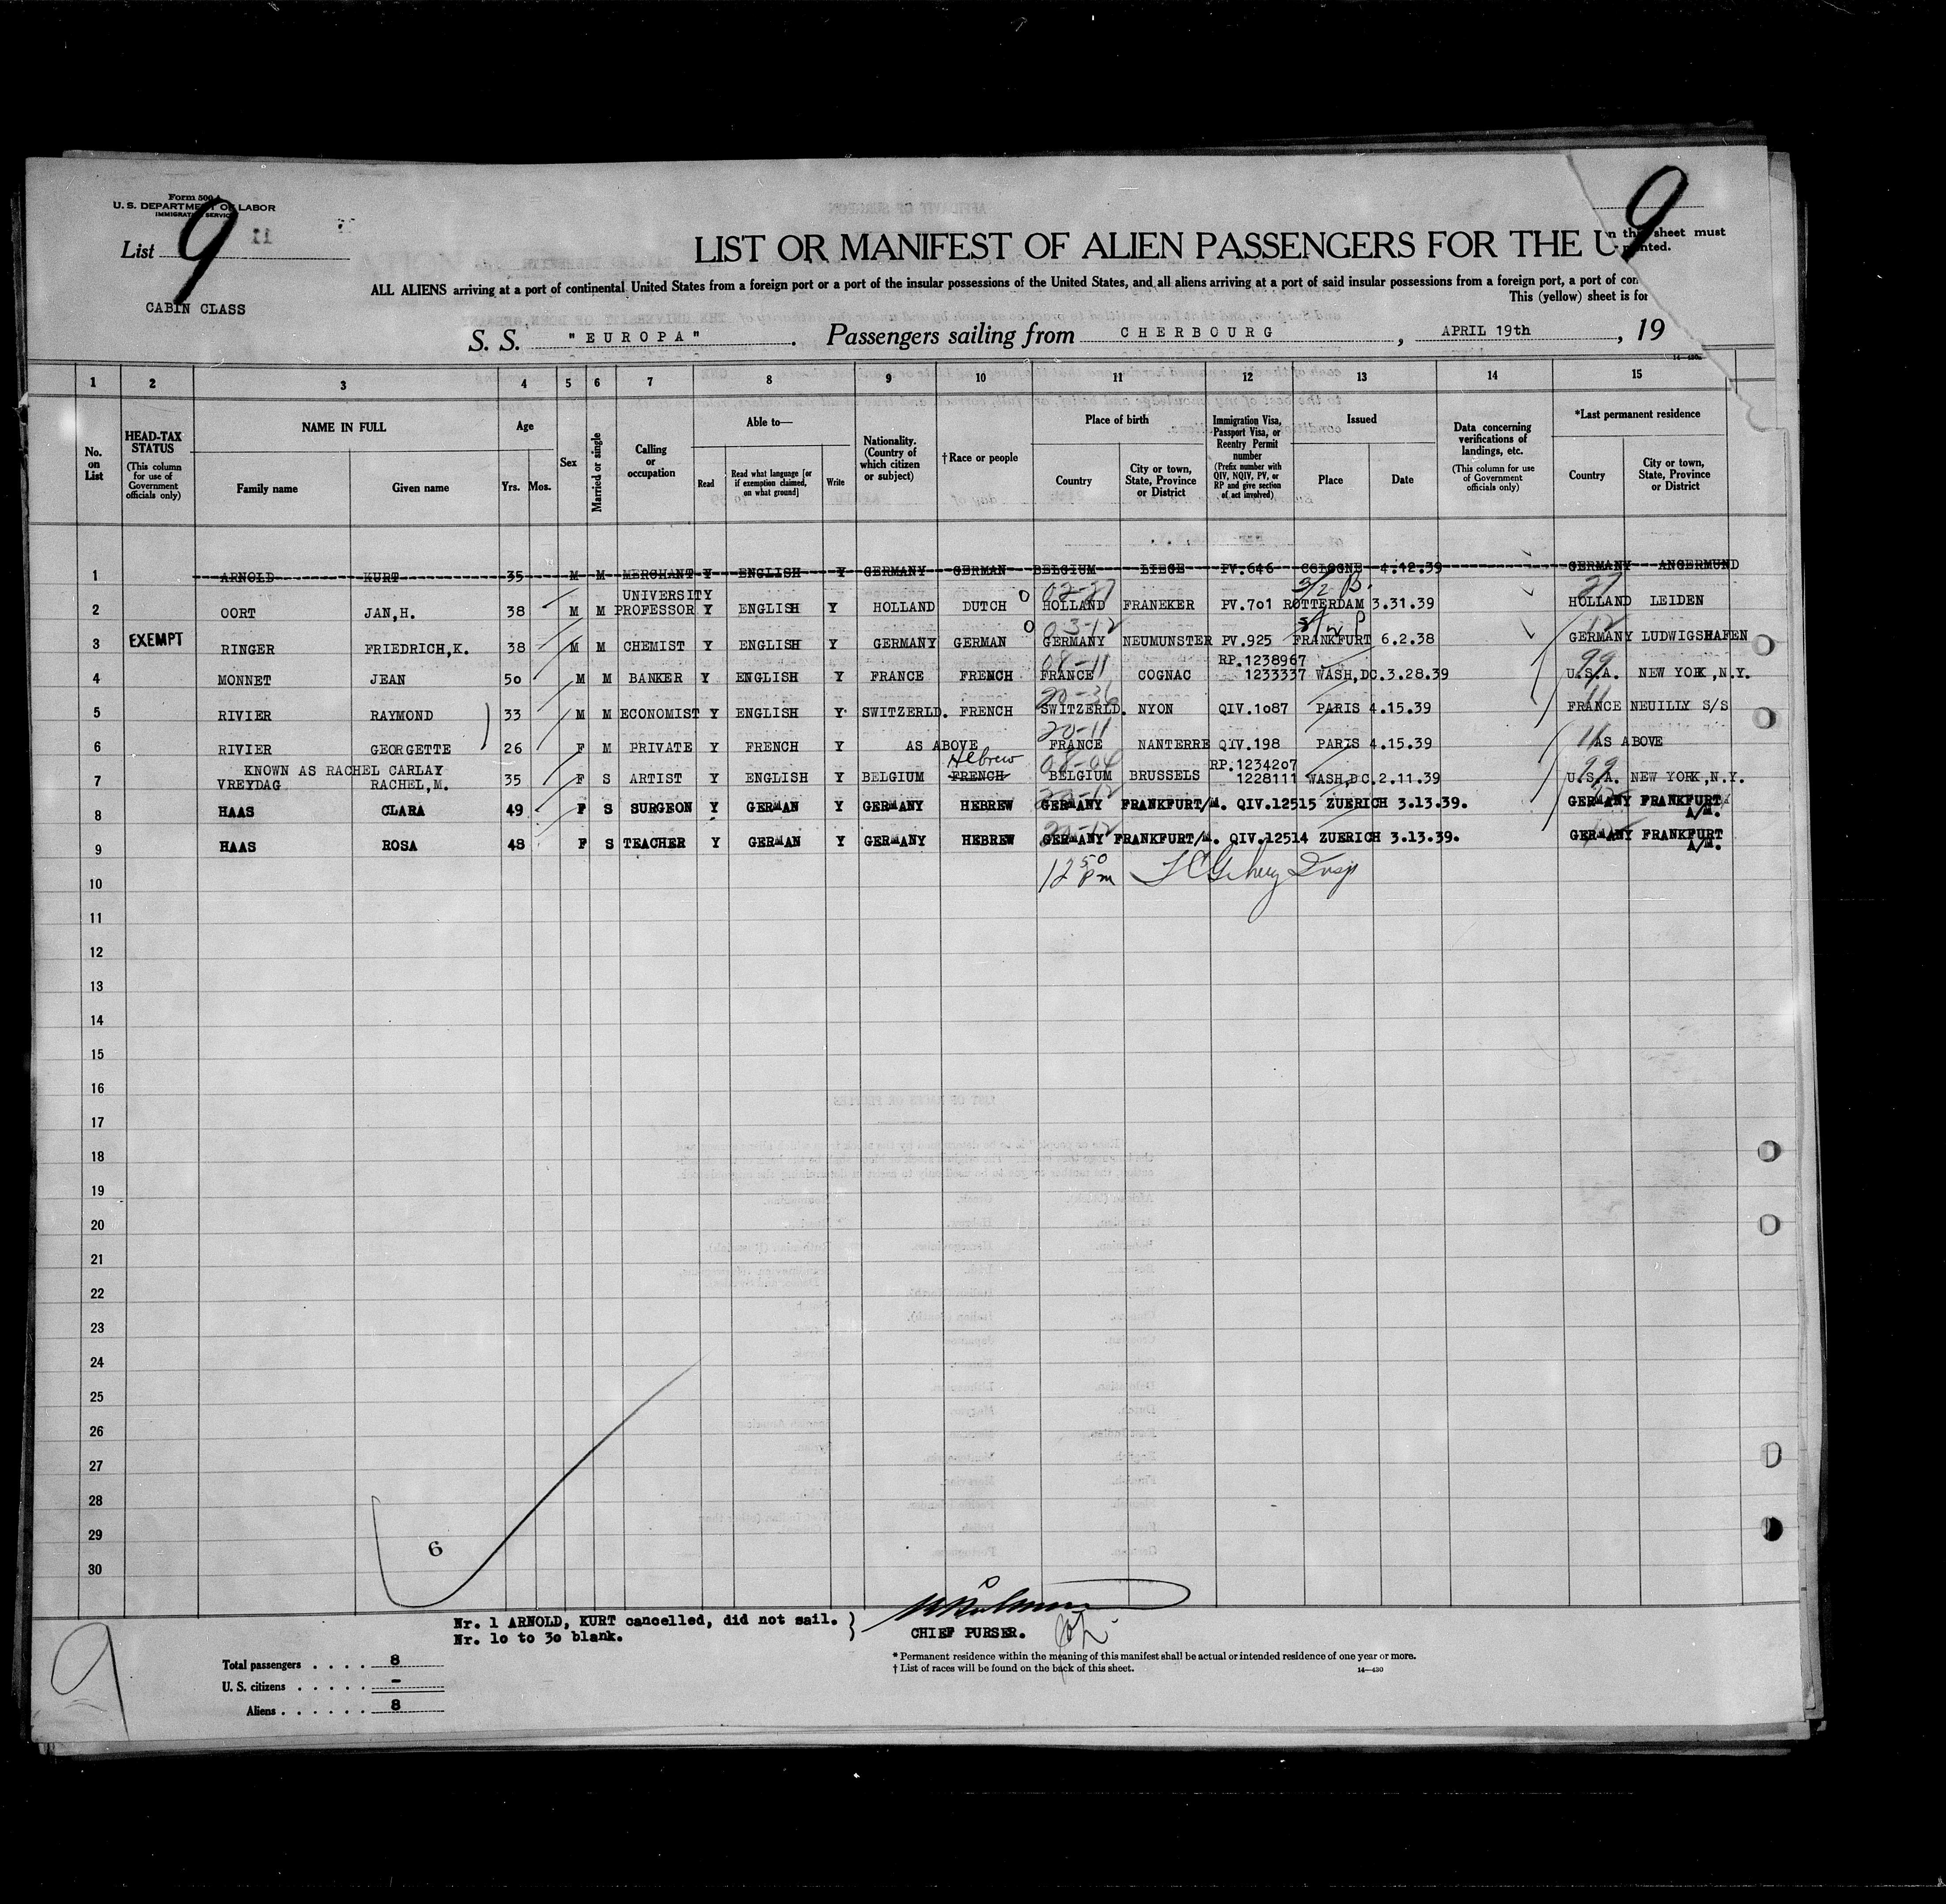 Form 500
U. S. DEPARTMENT OF LABOR
IMMIGRATION SERVICE
List 9
11
9
n this sheet must
LIST OR MANIFEST OF ALIEN PASSENGERS FOR THE U
ALL ALIENS arriving at a port of continental United States from a foreign port or a port of the insular possessions of the United States, and all aliens arriving at a port of said insular possessions from a foreign port, a port of con
This (yellow) sheet is for
CABIN CLASS
S. S. "EUROPA" . Passengers sailing from CHERBOURG , APRIL 19th , 19
14—430
1 2 3 4 5 6 7 8 9 10 11 12 13 14 15
No. on List
HEAD-TAX STATUS
(This column for use of Government officials only)
NAME IN FULL
Family name Given name
Age
Yrs. Mos.
Sex
Married or single
Calling or occupation
Able to—
Read Read what language [or if exemption claimed, on what ground] Write
Nationality. (Country of which citizen or subject)
†Race or people
Place of birth
Country City or town, State, Province or District
Immigration Visa, Passport Visa, or Reentry Permit number
(Prefix number with QIV, NQIV, PV, or RP and give section of act involved)
Issued
Place Date
Data concerning verifications of landings, etc.
(This column for use of Government officials only)
*Last permanent residence
Country City or town, State, Province or District
1 ARNOLD KURT 35 M M MERCHANT Y ENGLISH Y GERMANY GERMAN BELGIUM LIEGE PV.646 COLOGNE 4.12.39 GERMANY ANGERMUND
02-27 27
2 OORT JAN,H. 38 M M UNIVERSITY PROFESSOR Y ENGLISH Y HOLLAND DUTCH HOLLAND FRANEKER PV.701 ROTTERDAM 3.31.39 HOLLAND LEIDEN
03-12 12
3 EXEMPT RINGER FRIEDRICH,K. 38 M M CHEMIST Y ENGLISH Y GERMANY GERMAN GERMANY NEUMUNSTER PV.925 FRANKFURT 6.2.38 GERMANY LUDWIGSHAFEN
08-11 99
4 MONNET JEAN 50 M M BANKER Y ENGLISH Y FRANCE FRENCH FRANCE COGNAC RP.1238967 1233337 WASH,DC.3.28.39 U.S.A. NEW YORK,N.Y.
20-36 11
5 RIVIER RAYMOND 33 M M ECONOMIST Y ENGLISH Y SWITZERLD. FRENCH SWITZERLD. NYON QIV.1087 PARIS 4.15.39 FRANCE NEUILLY S/S
20-11 11
6 RIVIER GEORGETTE 26 F M PRIVATE Y FRENCH Y AS ABOVE FRANCE NANTERRE QIV.198 PARIS 4.15.39 AS ABOVE
KNOWN AS RACHEL CARLAY Hebrew 08-04 99
7 VREYDAG RACHEL,M. 35 F S ARTIST Y ENGLISH Y BELGIUM FRENCH BELGIUM BRUSSELS RP.1234207 1228111 WASH,DC.2.11.39 U.S.A. NEW YORK,N.Y.
20-12
8 HAAS CLARA 49 F S SURGEON Y GERMAN Y GERMANY HEBREW GERMANY FRANKFURT/M. QIV.12515 ZUERICH 3.13.39. GERMANY FRANKFURT A/M.
20-12
9 HAAS ROSA 48 F S TEACHER Y GERMAN Y GERMANY HEBREW GERMANY FRANKFURT/M. QIV.12514 ZUERICH 3.13.39. GERMANY FRANKFURT A/M.
10 12 50 pm Insp
11
12
13
14
15
16
17
18
19
20
21
22
23
24
25
26
27
28
29
30
6
9
Nr. 1 ARNOLD, KURT cancelled, did not sail.
Nr. 10 to 30 blank.
CHIEF PURSER.
Total passengers . . . . 8
U. S. citizens . . . . . –
Aliens . . . . . . 8
* Permanent residence within the meaning of this manifest shall be actual or intended residence of one year or more.
† List of races will be found on the back of this sheet.
14—430